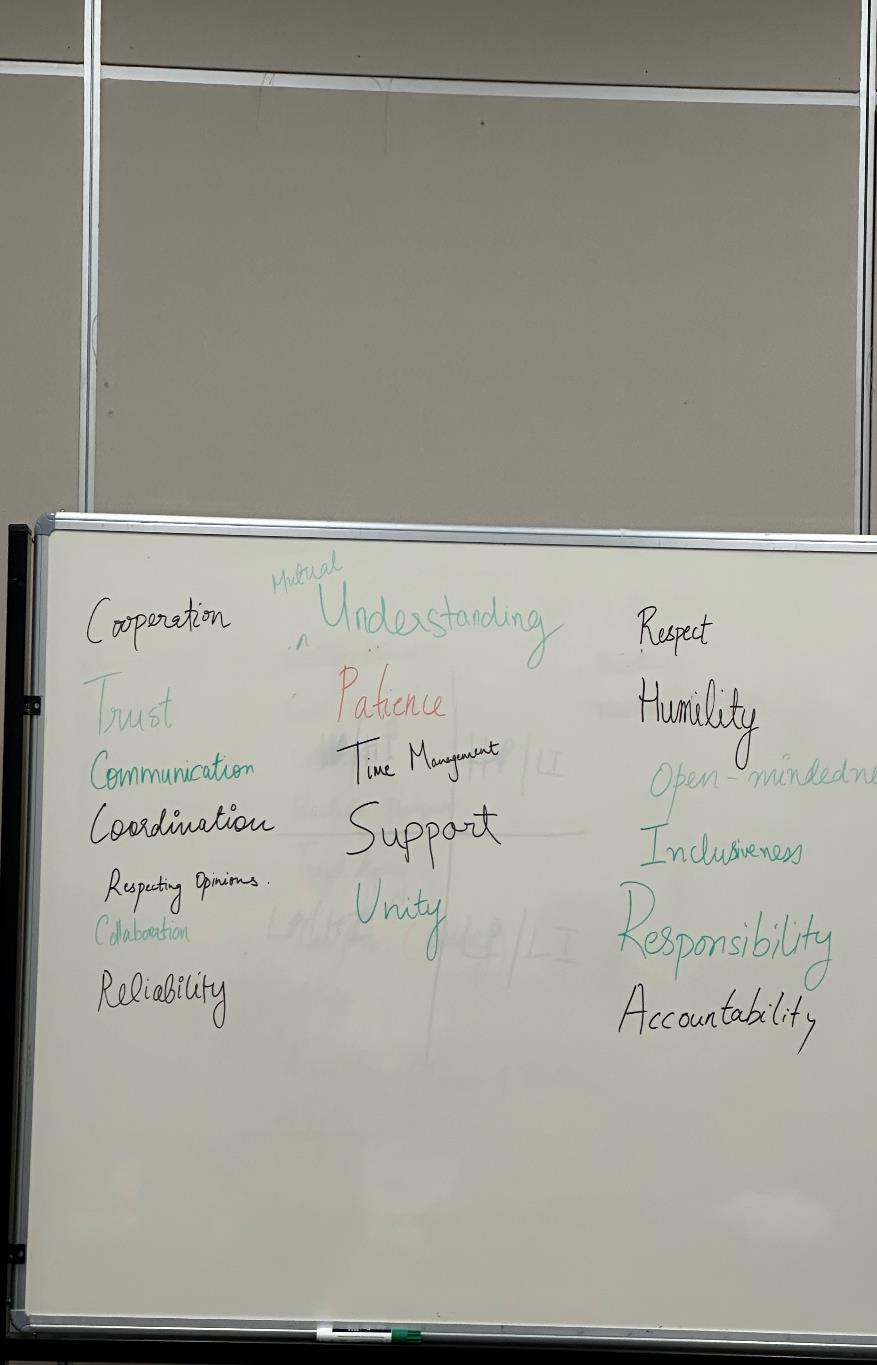 Cooperation
Trust
Communication
Coordination
Respecting Opinions.
Collaboration
Reliability
Mutual
^ Understanding
Patience
Time Management
Support
Unity
Respect
Humility
Open-mindedne
Inclusiveness
Responsibility
Accountability